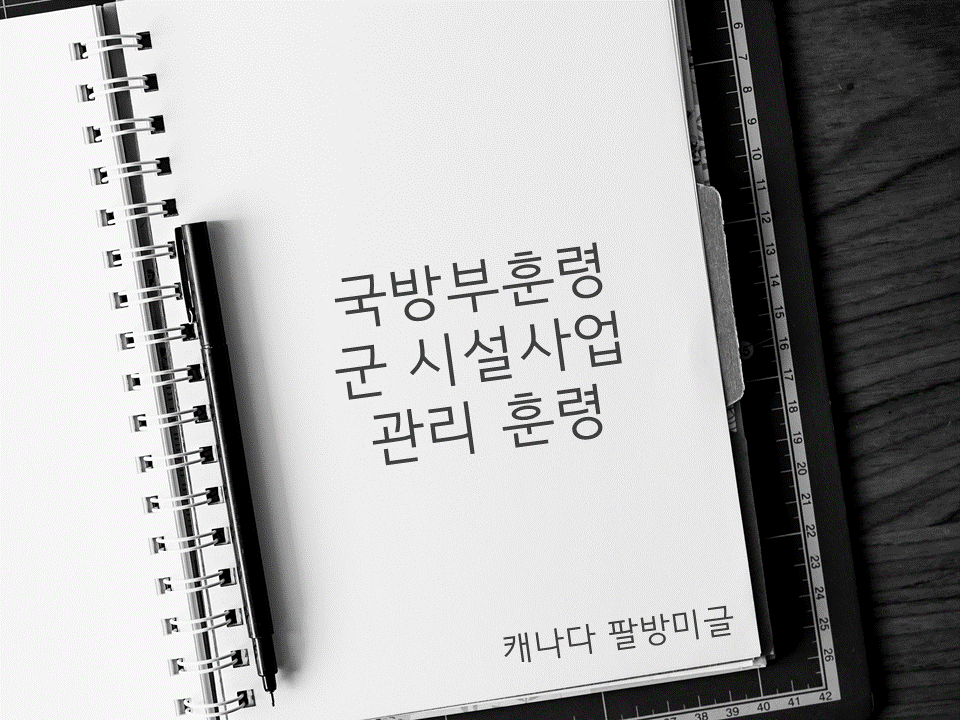 국방부훈령
군 시설사업
관리 훈령
캐나다 팔방미글
6
7
8
9
10
11
12
13
14
15
16
17
18
19
20
21
22
23
24
25
26
37 38 39 40 41 42